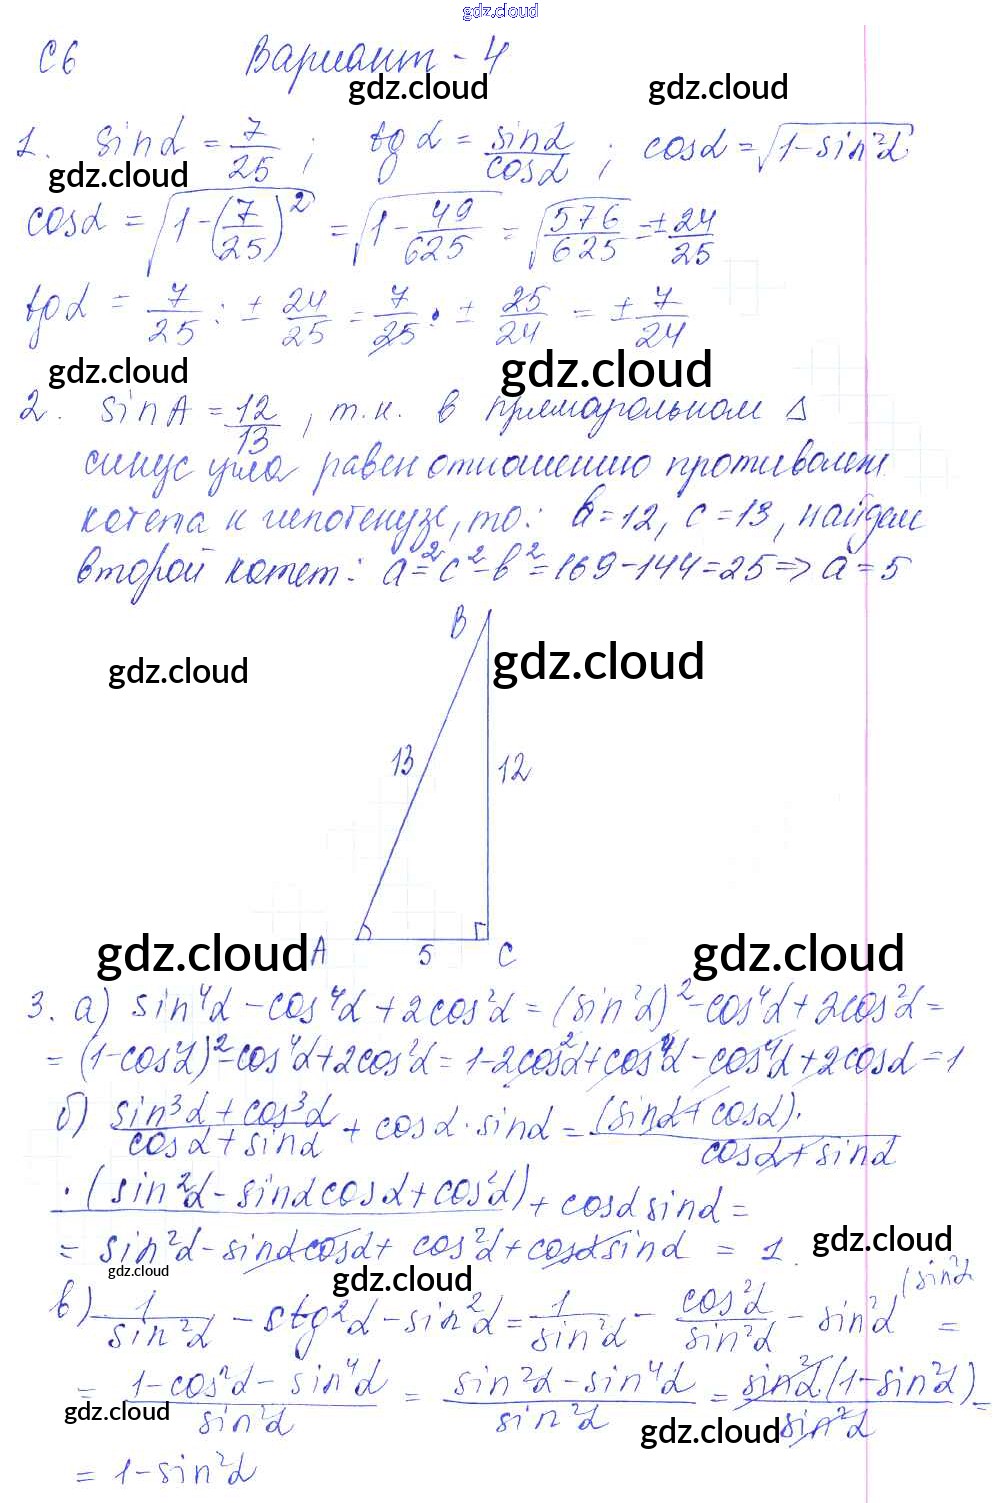 gdz.cloud
С6 Вариант - 4
gdz.cloud gdz.cloud
1. sin α = 7/25 ; tg α = sin α/cos α ; cos α = √(1-sin²α)
gdz.cloud
cos α = √(1-(7/25)²) = √(1-49/625) = √(576/625) = ±24/25
tg α = 7/25 : ± 24/25 = 7/25 · ± 25/24 = ± 7/24
gdz.cloud gdz.cloud
2. sin A = 12/13, т.к. в прямоугольном Δ
синус угла равен отношению противолеж
катета к гипотенузе, то: b=12, c=13, найдем
второй катет: a²=c²-b²=169-144=25=> a=5
B
gdz.cloud gdz.cloud
13 12
A 5 C
gdz.cloud gdz.cloud
3. а) sin⁴α - cos⁴α + 2cos²α = (sin²α)² - cos⁴α + 2cos²α =
= (1-cos²α)² - cos⁴α + 2cos²α = 1-2cos²α + cos⁴α - cos⁴α + 2cosα = 1
б) (sin³α + cos³α)/(cosα + sinα) + cosα · sinα = (sinα + cosα)·/(cosα + sinα)
·(sin²α - sinα cosα + cos²α) + cosα sinα =
= sin²α - sinα cosα + cos²α + cosα sinα = 1.
gdz.cloud
gdz.cloud gdz.cloud
в) 1/sin²α - ctg²α - sin²α = 1/sin²α - cos²α/sin²α - sin²α (sin²α =
= (1-cos²α - sin⁴α)/sin²α = (sin²α - sin⁴α)/sin²α = sin²α(1-sin²α)/sin²α =
gdz.cloud gdz.cloud
= 1-sin²α